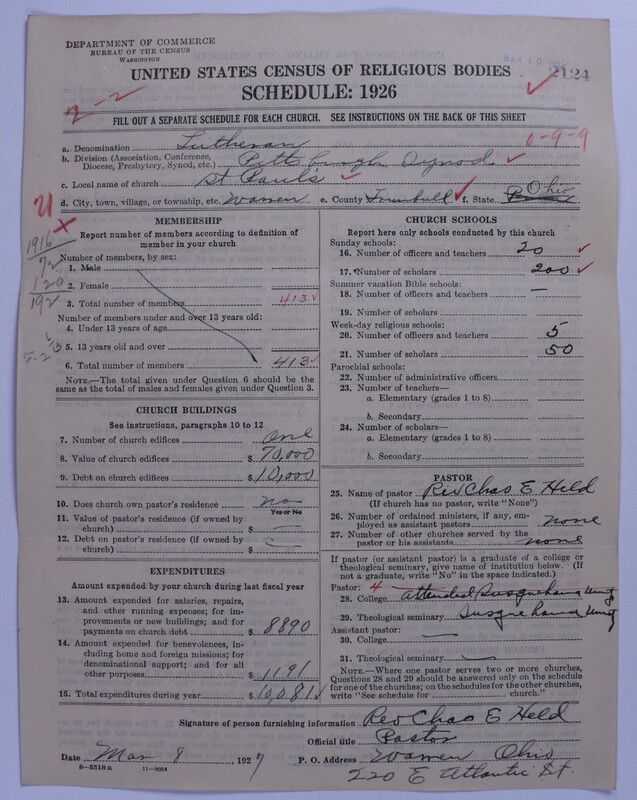 DEPARTMENT OF COMMERCE
BUREAU OF THE CENSUS
WASHINGTON
2124
UNITED STATES CENSUS OF RELIGIOUS BODIES
SCHEDULE: 1926
2-2
FILL OUT A SEPARATE SCHEDULE FOR EACH CHURCH. SEE INSTRUCTIONS ON THE BACK OF THIS SHEET
0-9-9
a. Denomination Lutheran
b. Division (Association, Conference, Diocese, Presbytery, Synod, etc.) Pittsburgh Synod
c. Local name of church St Paul's
d. City, town, village, or township, etc. Warren e. County Trumbull f. State Ohio
MEMBERSHIP
Report number of members according to definition of member in your church
1916
72
120
192
Number of members, by sex:
1. Male
2. Female
3. Total number of members 413
Number of members under and over 13 years old:
4. Under 13 years of age
5. 13 years old and over
6. Total number of members 413
NOTE.—The total given under Question 6 should be the same as the total of males and females given under Question 3.
CHURCH BUILDINGS
See instructions, paragraphs 10 to 12
7. Number of church edifices One
8. Value of church edifices $ 70,000
9. Debt on church edifices $ 10,000
10. Does church own pastor's residence no
Yes or No
11. Value of pastor's residence (if owned by church) $ —
12. Debt on pastor's residence (if owned by church) $ —
EXPENDITURES
Amount expended by your church during last fiscal year
13. Amount expended for salaries, repairs, and other running expenses; for improvements or new buildings; and for payments on church debt $ 8890
14. Amount expended for benevolences, including home and foreign missions; for denominational support; and for all other purposes $ 1191
15. Total expenditures during year $ 10,081
CHURCH SCHOOLS
Report here only schools conducted by this church
Sunday schools:
16. Number of officers and teachers 20
17. Number of scholars 200
Summer vacation Bible schools:
18. Number of officers and teachers —
19. Number of scholars
Week-day religious schools:
20. Number of officers and teachers 5
21. Number of scholars 50
Parochial schools:
22. Number of administrative officers
23. Number of teachers—
a. Elementary (grades 1 to 8)
b. Secondary
24. Number of scholars—
a. Elementary (grades 1 to 8)
b. Secondary
PASTOR
25. Name of pastor Rev Chas E Held
(If church has no pastor, write "None")
26. Number of ordained ministers, if any, employed as assistant pastors none
27. Number of other churches served by the pastor or his assistants none
If pastor (or assistant pastor) is a graduate of a college or theological seminary, give name of institution below. (If not a graduate, write "No" in the space indicated.)
Pastor: 4
28. College attended Susquehanna Univ
29. Theological seminary Susquehanna Univ
Assistant pastor:
30. College —
31. Theological seminary
NOTE.—Where one pastor serves two or more churches, Questions 28 and 29 should be answered only on the schedule for one of the churches; on the schedules for the other churches, write "See schedule for church."
Signature of person furnishing information Rev Chas E Held
Official title Pastor
Date Mar 8 1927 P. O. Address Warren Ohio
220 E Atlantic St.
8-5318a 11-9054